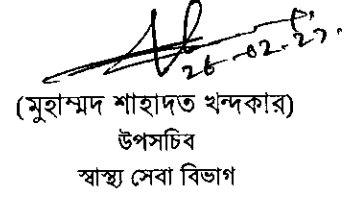 26-02-23
(মুহাম্মদ শাহাদত খন্দকার)
উপসচিব
স্বাস্থ্য সেবা বিভাগ